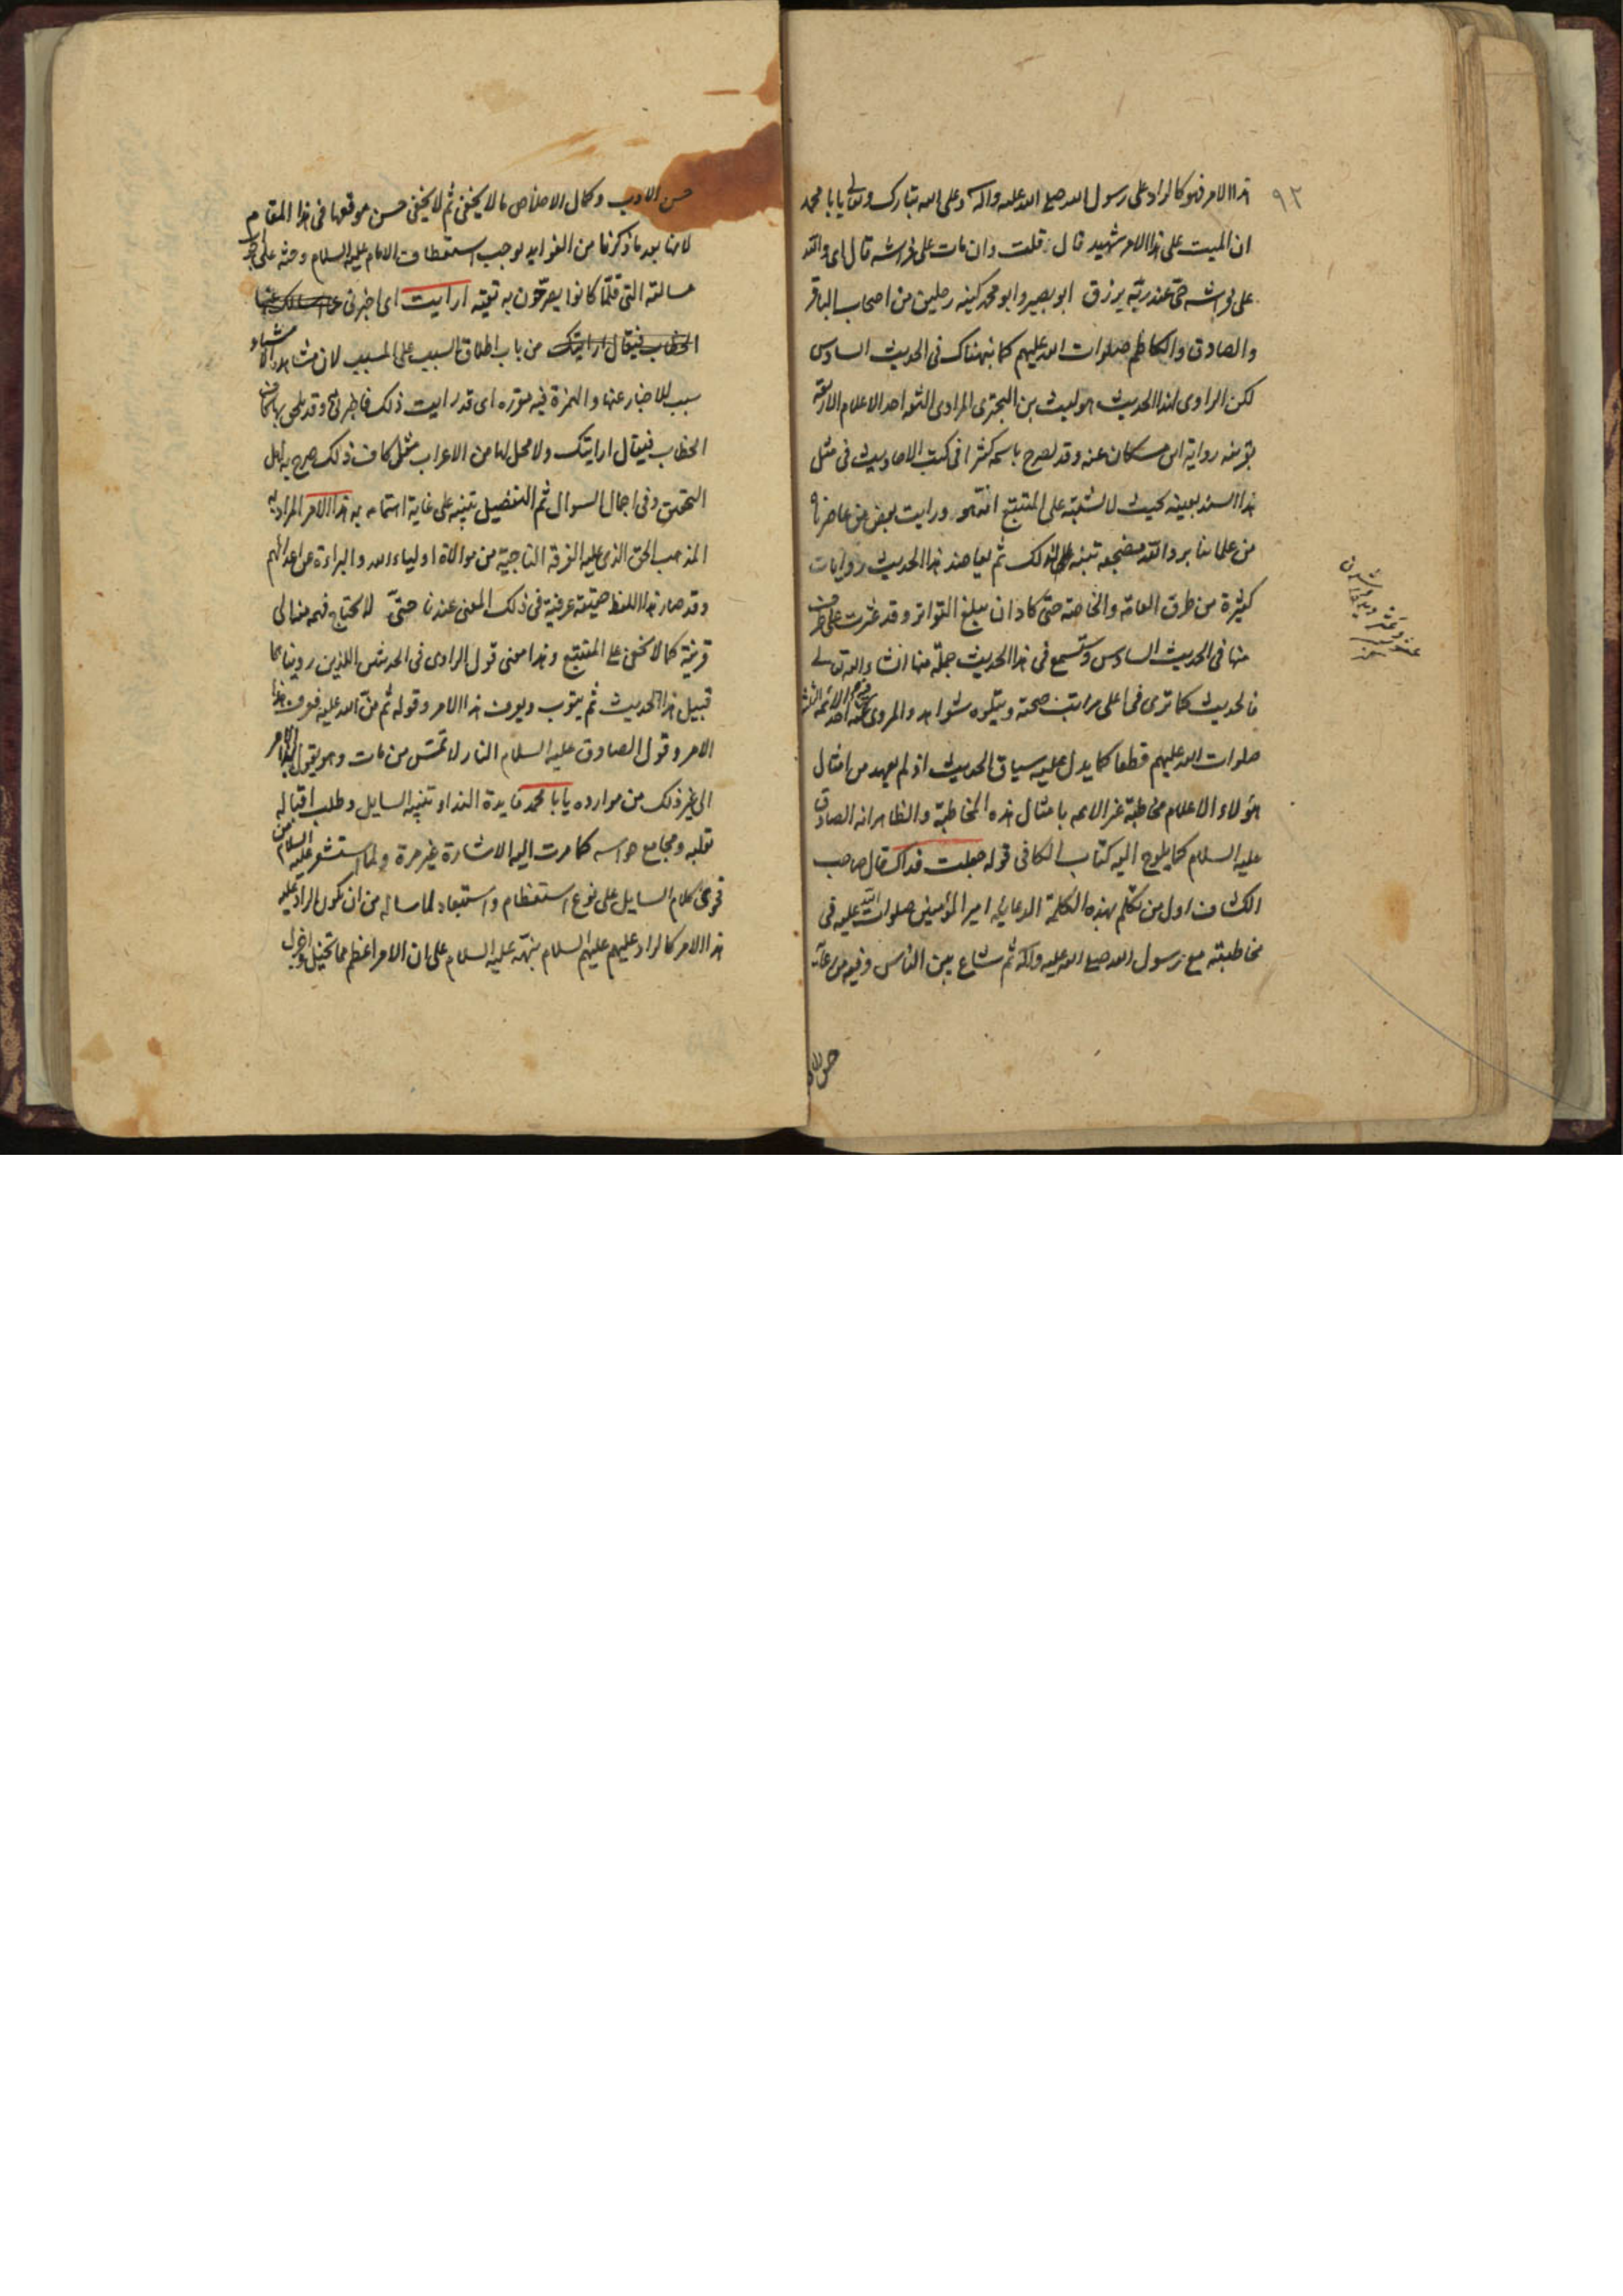 ٩٢
هذا الامر فهو كالراد على رسول الله صلى الله عليه واله وعلى الله تبارك وتعالى يابا محمد
ان الميت على هذا الامر شهيد قال قلت وان مات على فراشه قال اى والله
على فراشه حىّ عند ربّه يرزق ابو بصير وابو محمد كنيه رجلين من اصحاب الباقر
والصادق والكاظم صلوات الله عليهم كما نبهناك فى الحديث السادس
لكن الراوى لهذا الحديث هو ليث بن البخترى المرادى الثقه احد الاعلام الاربعه
بقرينه رواية ابن مسكان عنه وقد يصرح باسمه كثيرا فى كتب الاحاديث فى مثل
هذا السند بعينه بحيث لا يشتبه على المتتبع انه هو ورايت بعض من عاصرناه
من علمائنا برد الله مضجعه تنبه لذلك ثم يعاضد هذا الحديث روايات
كثيرة من طرق العامّه والخاصّه حتّى كاد ان يبلغ التواتر وقد عثرت على طرف
منها فى الحديث السادس وتسمع فى هذا الحديث جملة منها انشاء الله تعالى
فالحديث كما ترى فى اعلى مراتب صحته ويتلوه شواهد والمروى عنه احد الائمه الثلثه
صلوات الله عليهم قطعا كما يدل عليه سياق الحديث اذ لم يعهد من امثال
هؤلاء الاعلام مخاطبة غير الائمه بامثال هذه المخاطبة والظاهر انه الصادق
عليه السلام كما يلوح اليه كتاب الكافى قوله جعلت فداك قال صاحب
الكشاف اول من تكلم بهذه الكلمة الدعائيه امير المؤمنين صلوات الله عليه فى
مخاطبته مع رسول الله صلى الله عليه واله ثم شاع بين الناس وفيه من رعاية
حسن الا
حسن الادب وكمال الاخلاص ما لا يخفى ثم لا يخفى حسن موقعها فى هذا المقام
لانها بعد ما ذكرنا من الفوايد يوجب استعطاف الامام عليه السلام وحثه على
مسالته التى قلّما كانوا يصرّحون به تقيّه ارايت اى اخبرنى
الخطاب فيقال ارايتك من باب اطلاق السبب على المسبب لان مشاهدة الاشياء
سبب للاخبار عنها والهمزة فيه مقرره اى قد رايت ذلك فاخبرنى وقد يلحق بها كاف
الخطاب فيقال ارايتك ولا محل لها من الاعراب مثل كاف ذلك صرح به اهل
التحقيق وفى اجمال السوال ثم التفصيل تنبيه على غاية اهتمامه به هذا الامر المراد به
المذهب الحق الذى عليه الفرقه الناجيّة من موالاة اولياء الله والبراءة من اعدائهم
وقد صار هذا اللفظ حقيقة عرفية فى ذلك المعنى عندنا حتّى لا يحتاج فهمه منه الى
قرينة كما لا يخفى على المتتبع وهذا معنى قول الراوى فى الحديثين اللذين رويناهما
قبيل هذا الحديث ثم يتوب ويعرف هذا الامر وقوله ثم منّ الله عليه فعرف هذا
الامر وقول الصادق عليه السلام النار لا تمسّ من مات وهو يقول بهذا الامر
الى غير ذلك من موارده يابا محمد فايدة النداء تنبيه السايل وطلب اقباله
بقلبه ومجامع حواسه كما مرت اليه الاشارة غير مرة ولما استشعر عليه السلام من
فحوى كلام السايل على نوع استعظام واستبعاد لما ساله من ان يكون الراد عليه
هذا الامر كالراد عليهم عليهم السلام نبّهه عليه السلام على ان الامر اعظم مما تخيل